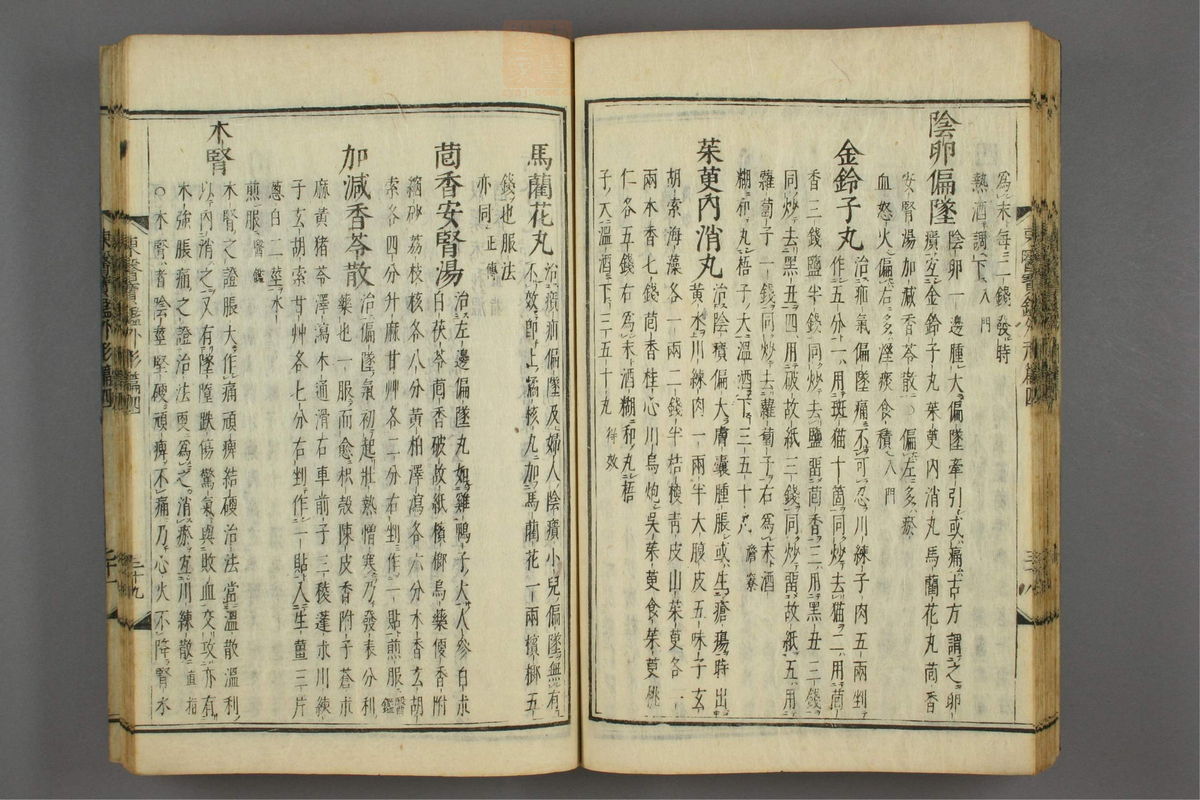 爲末每三錢發時
熱酒調下入門
陰卵偏墜陰卵一邊腫大偏墜牽引或痛古方謂之卵
㿉宜金鈴子丸茱萸內消丸馬藺花丸茴香
安腎湯加減香苓散○偏左多瘀
血怒火偏右多濕痰食積入門
金鈴子丸治疝氣偏墜痛不可忍川練子肉五兩剉
作五分一用斑猫十箇同炒去猫二用茴
香三錢鹽半錢同炒去鹽畱茴香三用黑丑三錢
同炒去黑丑四用破故紙三錢同炒畱故紙五用
蘿蔔子一錢同炒去蘿蔔子右爲末酒
糊和丸梧子大溫酒下三五十丸澹寮
茱萸內消丸治陰㿉偏大膚囊腫脹或生瘡瘍時出
黃水川練肉一兩半大腹皮五味子玄
胡索海藻各一兩二錢半桔梗靑皮山茱萸各一
兩木香七錢茴香桂心川烏炮吳茱萸食茱萸桃
仁各五錢右爲末酒糊和丸梧
子大溫酒下三五十丸得效
馬藺花丸治㿉疝偏墜及婦人陰㿉小兒偏墜無有
不效卽上橘核丸加馬藺花一兩檳榔五
錢也服法
亦同正傳
茴香安腎湯治左邊偏墜丸如雞鴨子大人參白朮
白茯苓茴香破故紙檳榔烏藥便香附
縮砂荔枝核各八分黃柏澤瀉各六分木香玄胡
索各四分升麻甘艸各二分右剉作一貼煎服醫鑑
加減香苓散治偏墜氣初起壯熱憎寒乃發表分利
藥也一服而愈枳殼陳皮香附子蒼朮
麻黃猪苓澤瀉木通滑石車前子三稜蓬朮川練
子玄胡索甘艸各七分右剉作一貼入生薑三片
蔥白二莖水
煎服醫鑑
木腎
木腎之證脹大作痛頑痺結硬治法當溫散溫利
以內消之又有墜墮跌傷驚氣與敗血交攻亦有
木強脹痛之證治法更爲之消瘀宜川練散直指
○木腎者陰莖堅硬頑痺不痛乃心火不降腎水